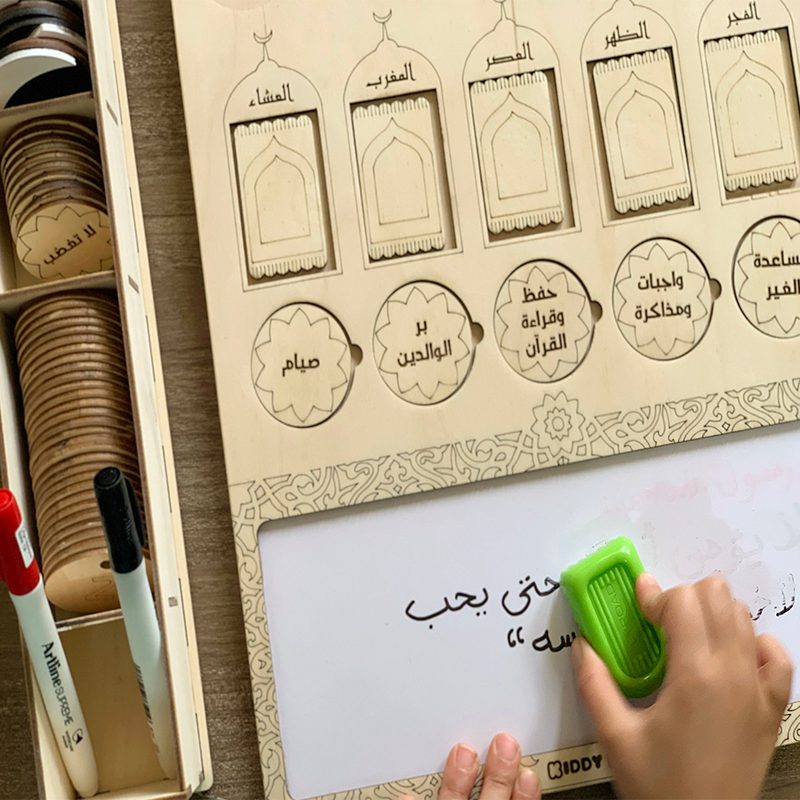 الفجر
الظهر
العصر
المغرب
العشاء
الغير
واجبات
ومذاكرة
حفظ
وقراءة
القرآن
بر
الوالدين
صيام
لا تغضب
حتى يحب
“
Artline SUPREME
KIDDY